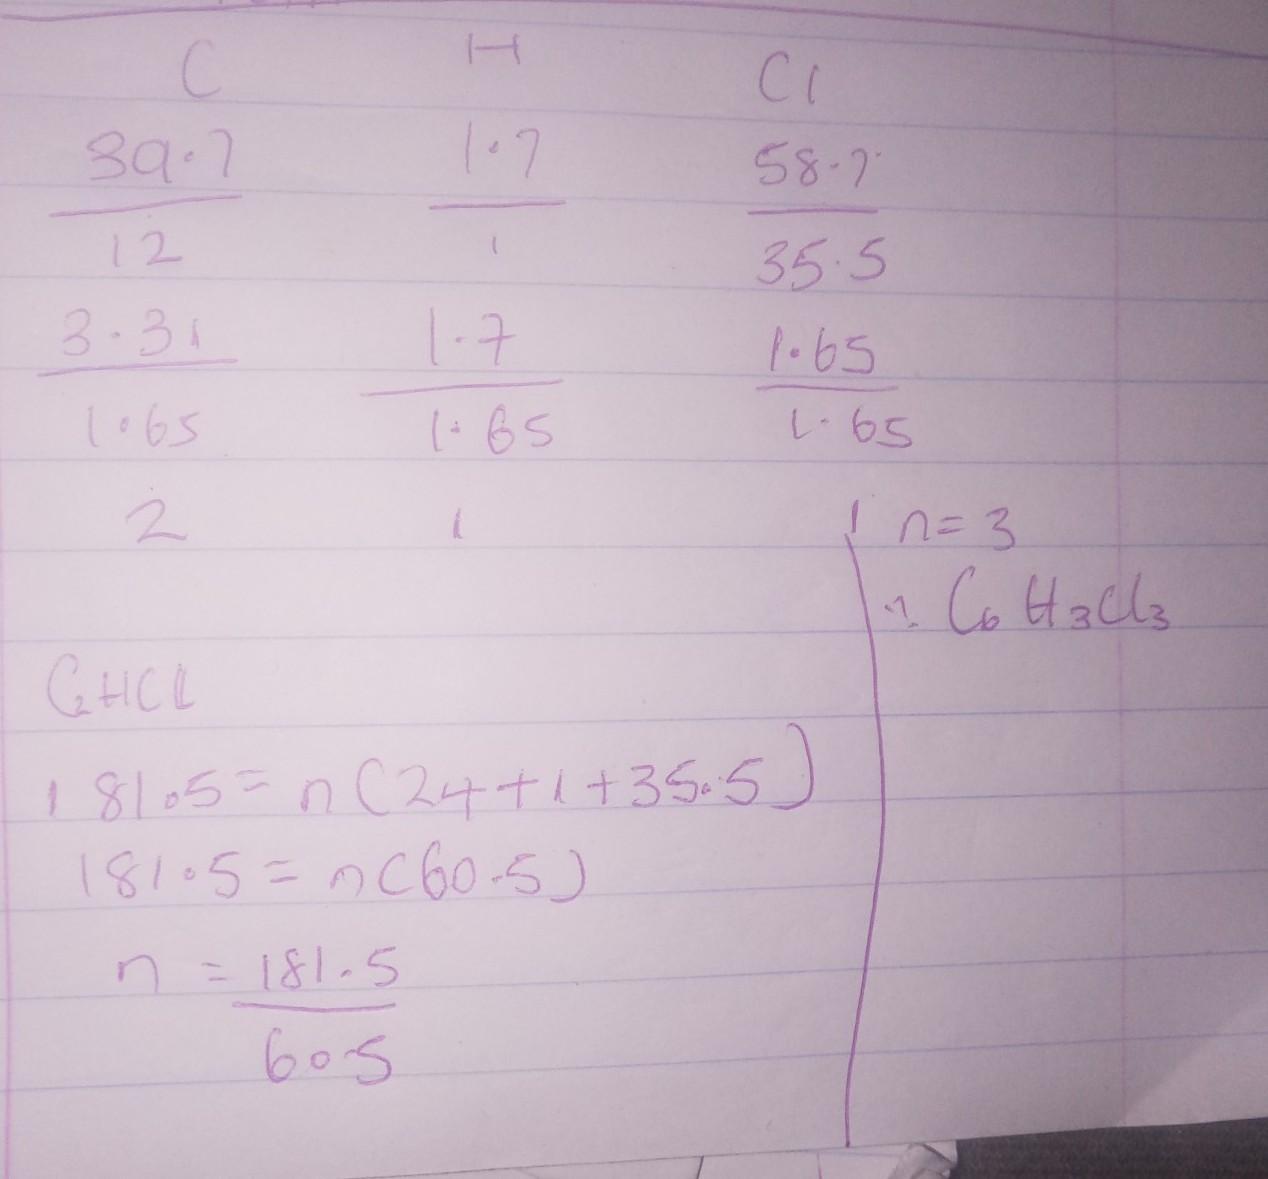 C H Cl
39.7 1.7 58.7
12 1 35.5
3.31 1.7 1.65
1.65 1.65 1.65
2 1 1 n = 3
∴ C₆H₃Cl₃
C₂HCl
181.5 = n(24+1+35.5)
181.5 = n(60.5)
n = 181.5
60.5